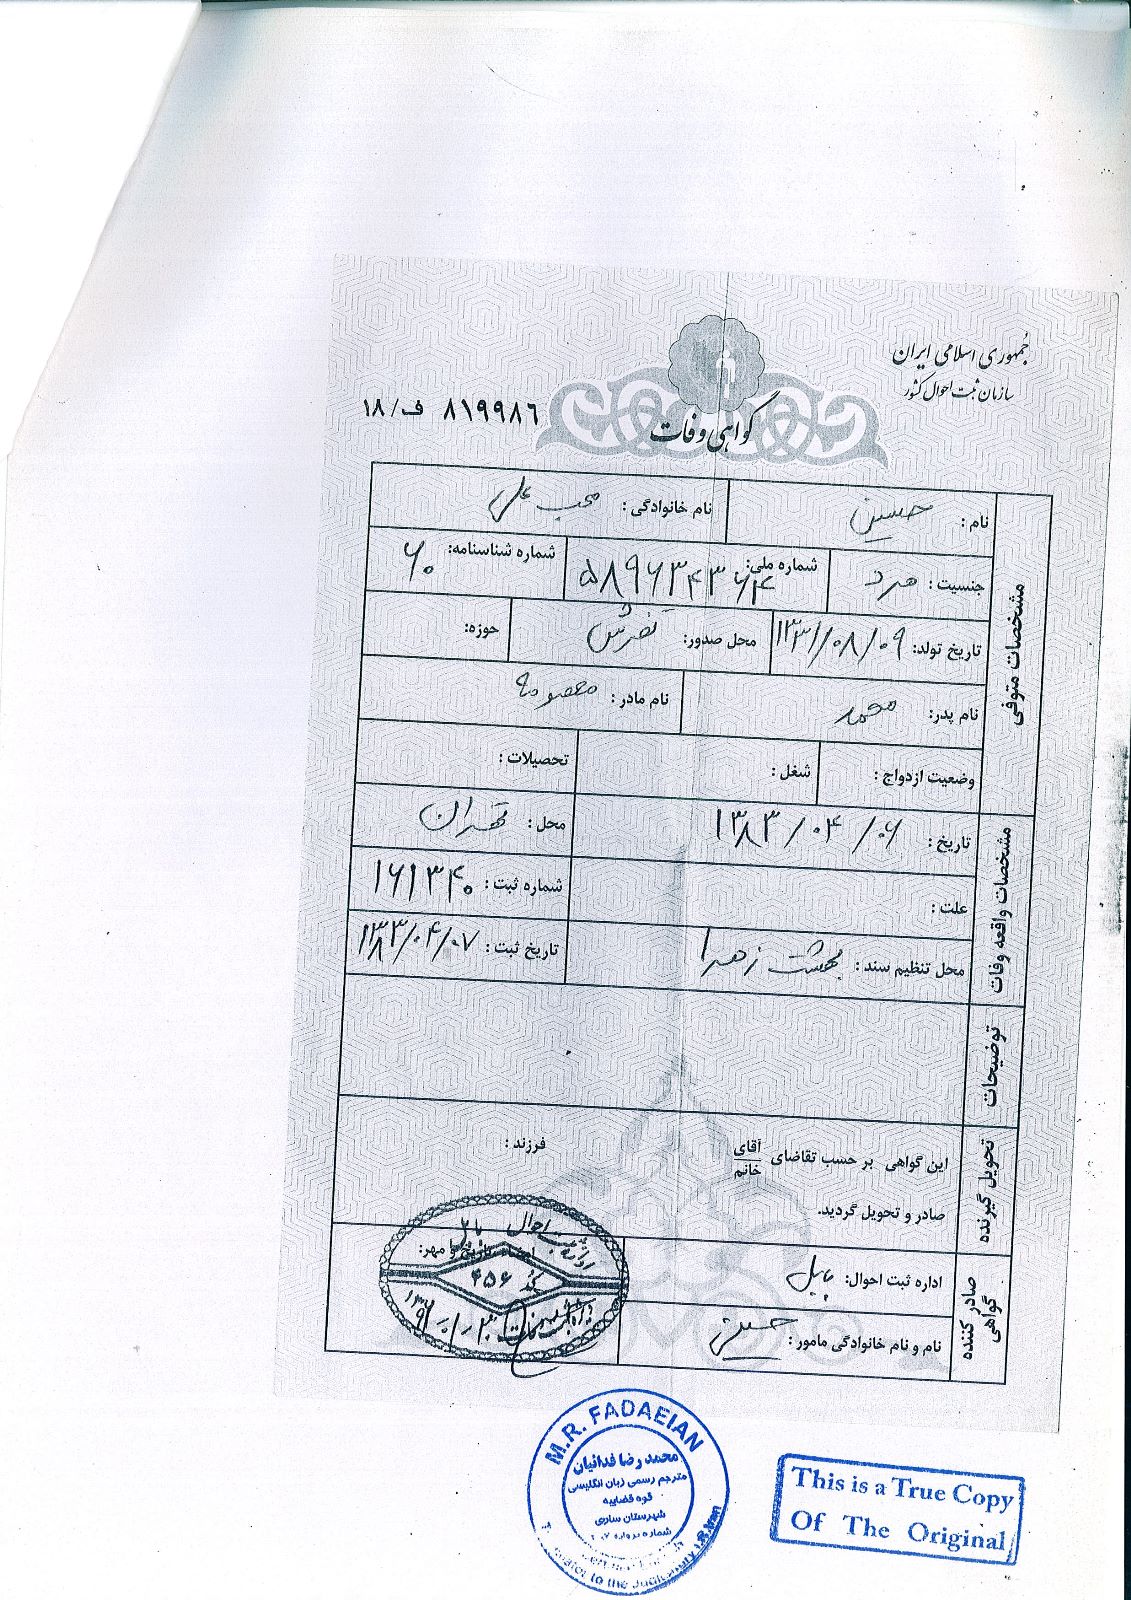 جمهوری اسلامی ایران
سازمان ثبت احوال کشور
گواهی وفات
۸۱۹۹۸۶ ف/۱۸
مشخصات متوفی
نام: حسین نام خانوادگی: محب علی
جنسیت: مرد شماره ملی: شماره شناسنامه: ۶۰
تاریخ تولد: ۱۳۳۱/۰۸/۰۹ محل صدور: تفرش حوزه:
نام پدر: محمد نام مادر: معصومه
وضعیت ازدواج: شغل: تحصیلات:
مشخصات واقعه وفات
تاریخ: ۱۳۸۳/۰۴/۰۶ محل: تهران
علت: شماره ثبت: ۱۶۱۳۴۰
محل تنظیم سند: بهشت زهرا تاریخ ثبت: ۱۳۸۳/۰۴/۰۷
توضیحات
تحویل گیرنده
این گواهی بر حسب تقاضای آقای خانم فرزند:
صادر و تحویل گردید.
صادر کننده گواهی
اداره ثبت احوال: بابل مهر:
نام و نام خانوادگی مامور:
اداره ثبت احوال بابل
کد ۴۵۶
M.R. FADAEIAN
محمد رضا فدائیان
مترجم رسمی زبان انگلیسی
قوه قضاییه
شهرستان ساری
شماره پروانه
to the Judiciary I.R.Iran
This is a True Copy
Of The Original